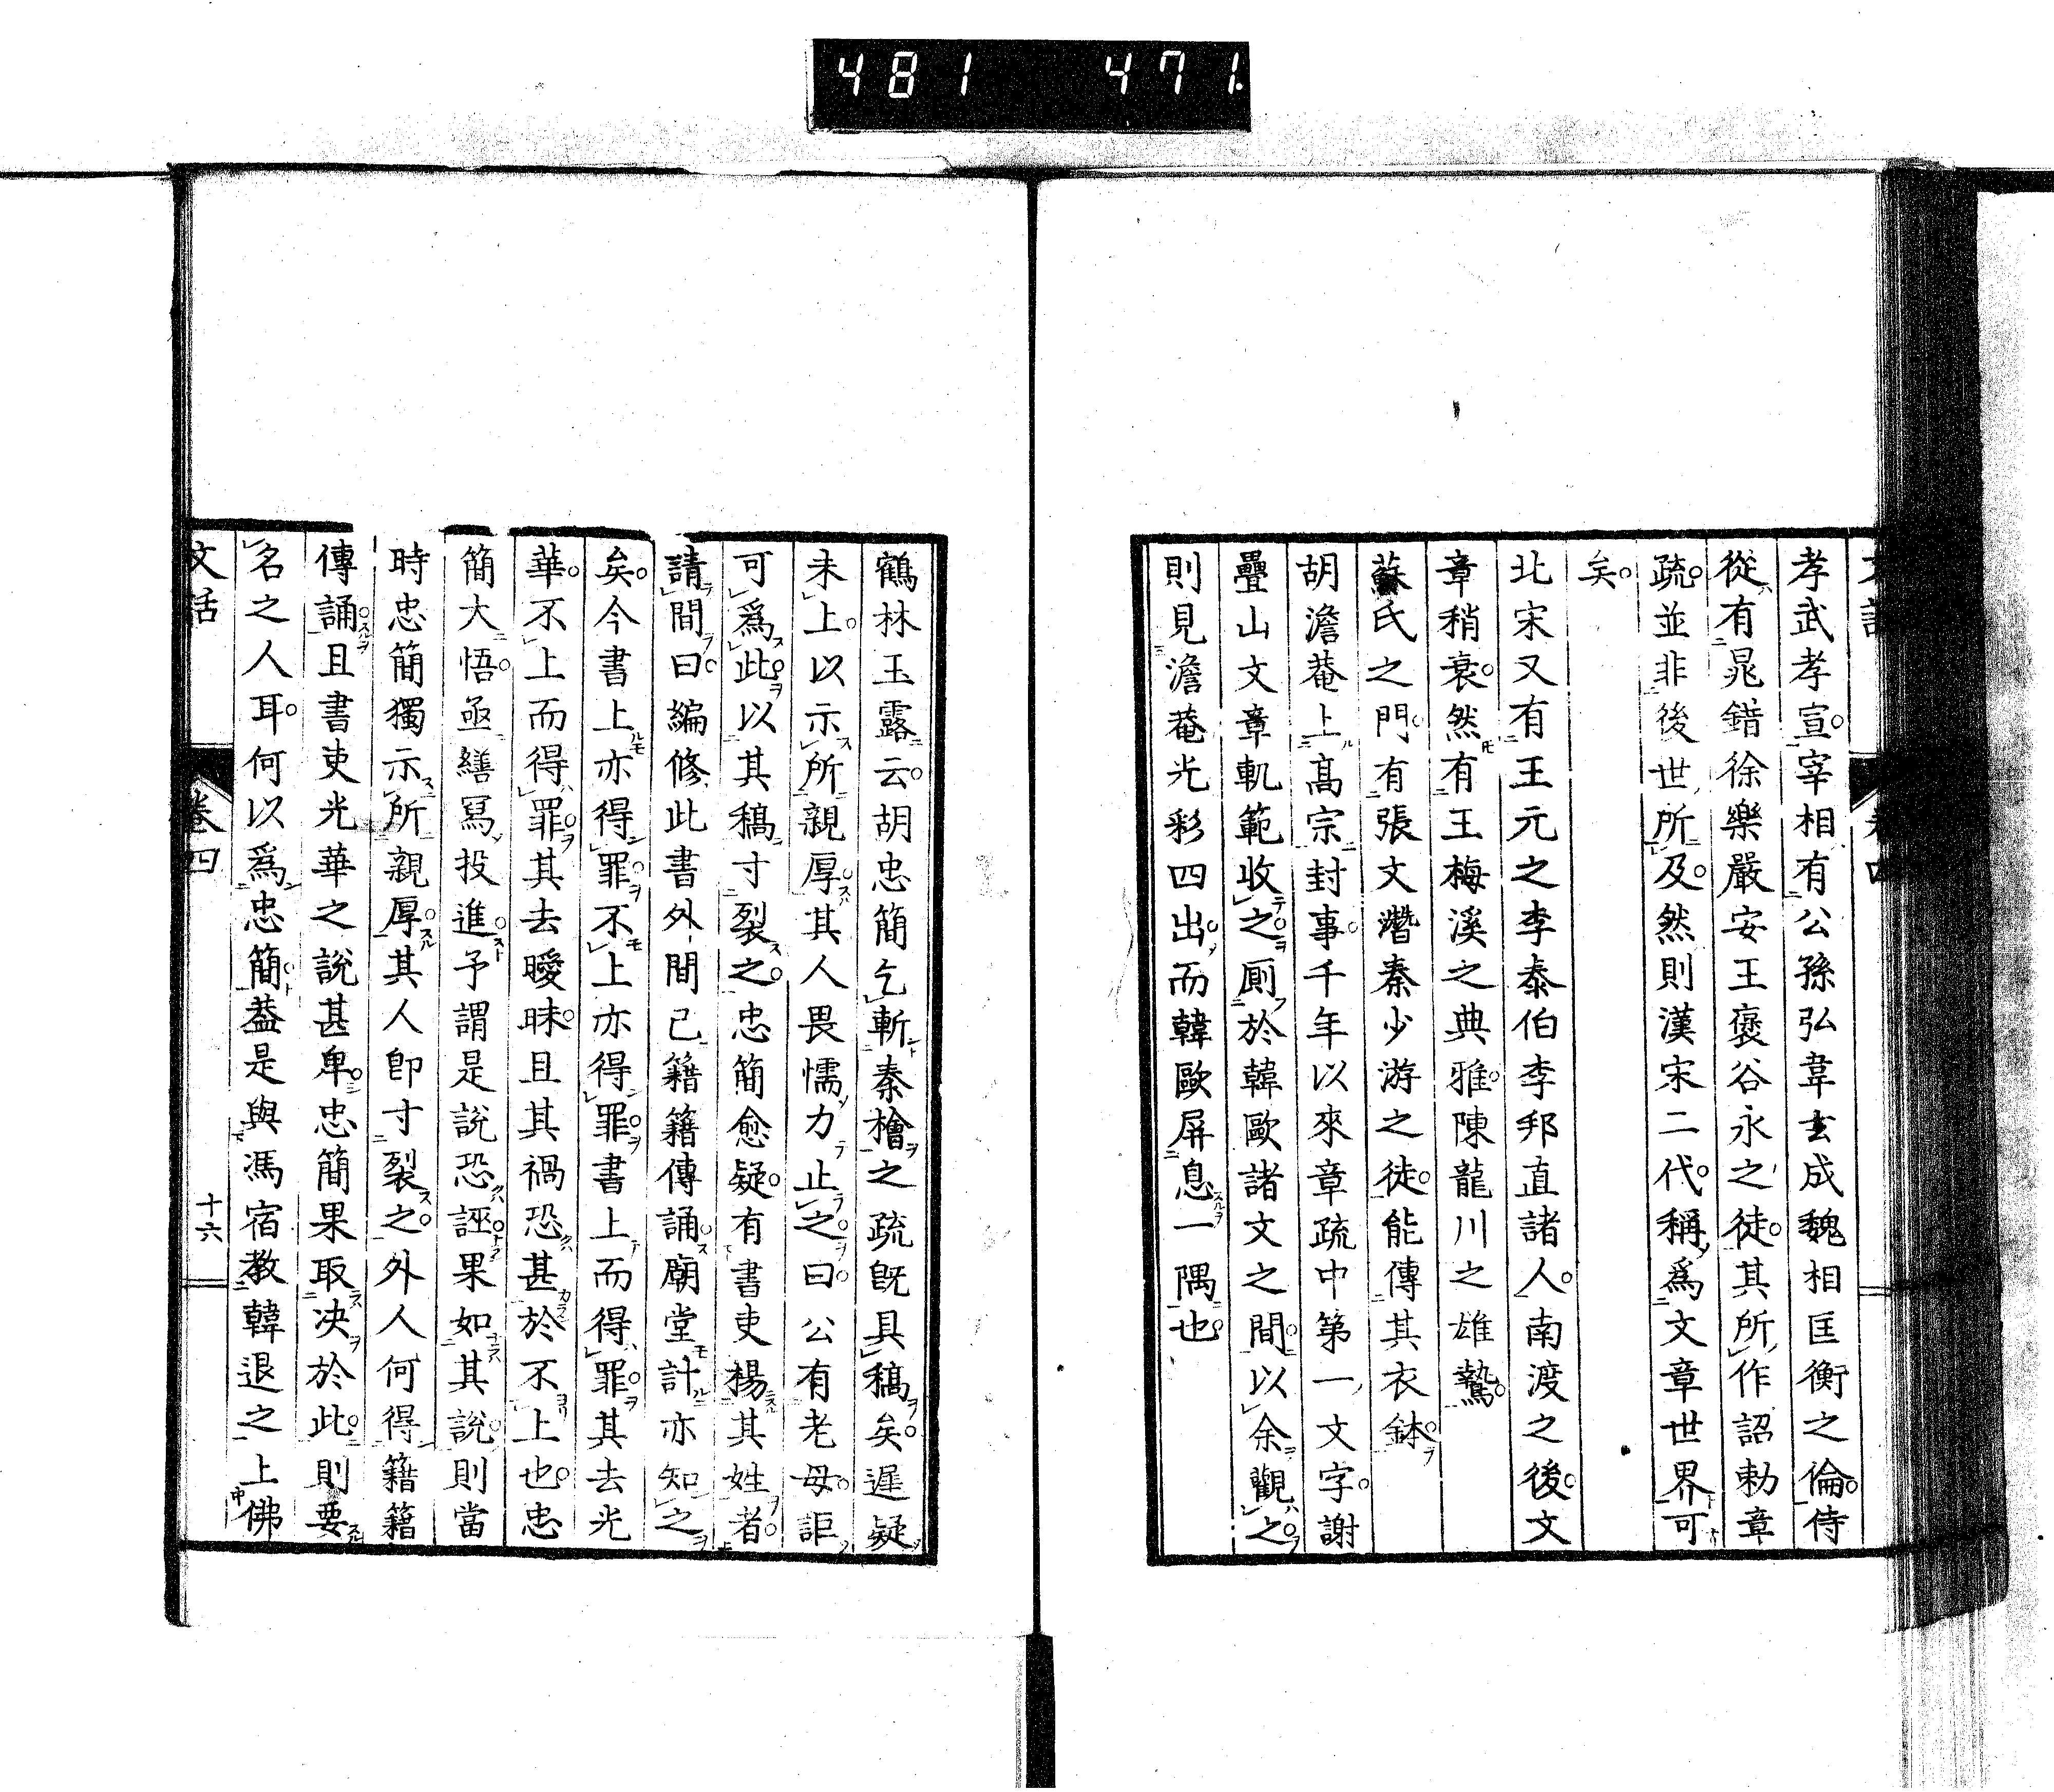 481 471.
孝武孝宣。宰相有公孫弘韋玄成魏相匡衡之倫。侍
從有晁錯徐樂嚴安王褒谷永之徒。其所作詔勅章
疏。並非後世所及。然則漢宋二代。稱爲文章世界可
矣。
北宋又有王元之李泰伯李邦直諸人。南渡之後。文
章稍衰。然有王梅溪之典雅。陳龍川之雄鷙。
蘇氏之門。有張文潛秦少游之徒。能傳其衣鉢。
胡澹菴上高宗封事。千年以來章疏中第一文字。謝
疊山文章軌範收之。厠於韓歐諸文之間。以余觀之。
則見澹菴光彩四出。而韓歐屏息一隅也。
鶴林玉露云。胡忠簡乞斬秦檜之疏旣具稿矣。遲疑
未上。以示所親厚。其人畏懦力止之。曰。公有老母。詎
可爲此。以其稿寸裂之。忠簡愈疑。有書吏楊其姓者。
請間曰。編修此書外間已籍籍傳誦。廟堂計亦知之
矣。今書上亦得罪。不上亦得罪。書上而得罪。其去光
華。不上而得罪。其去曖昧。且其禍恐甚於不上也。忠
簡大悟。亟繕寫投進。予謂是說恐誣。果如其說。則當
時忠簡獨示所親厚。其人卽寸裂之。外人何得籍籍
傳誦。且書吏光華之說甚卑。忠簡果取决於此。則要
名之人耳。何以爲忠簡。葢是與馮宿教韓退之上佛
文話
卷四
十六